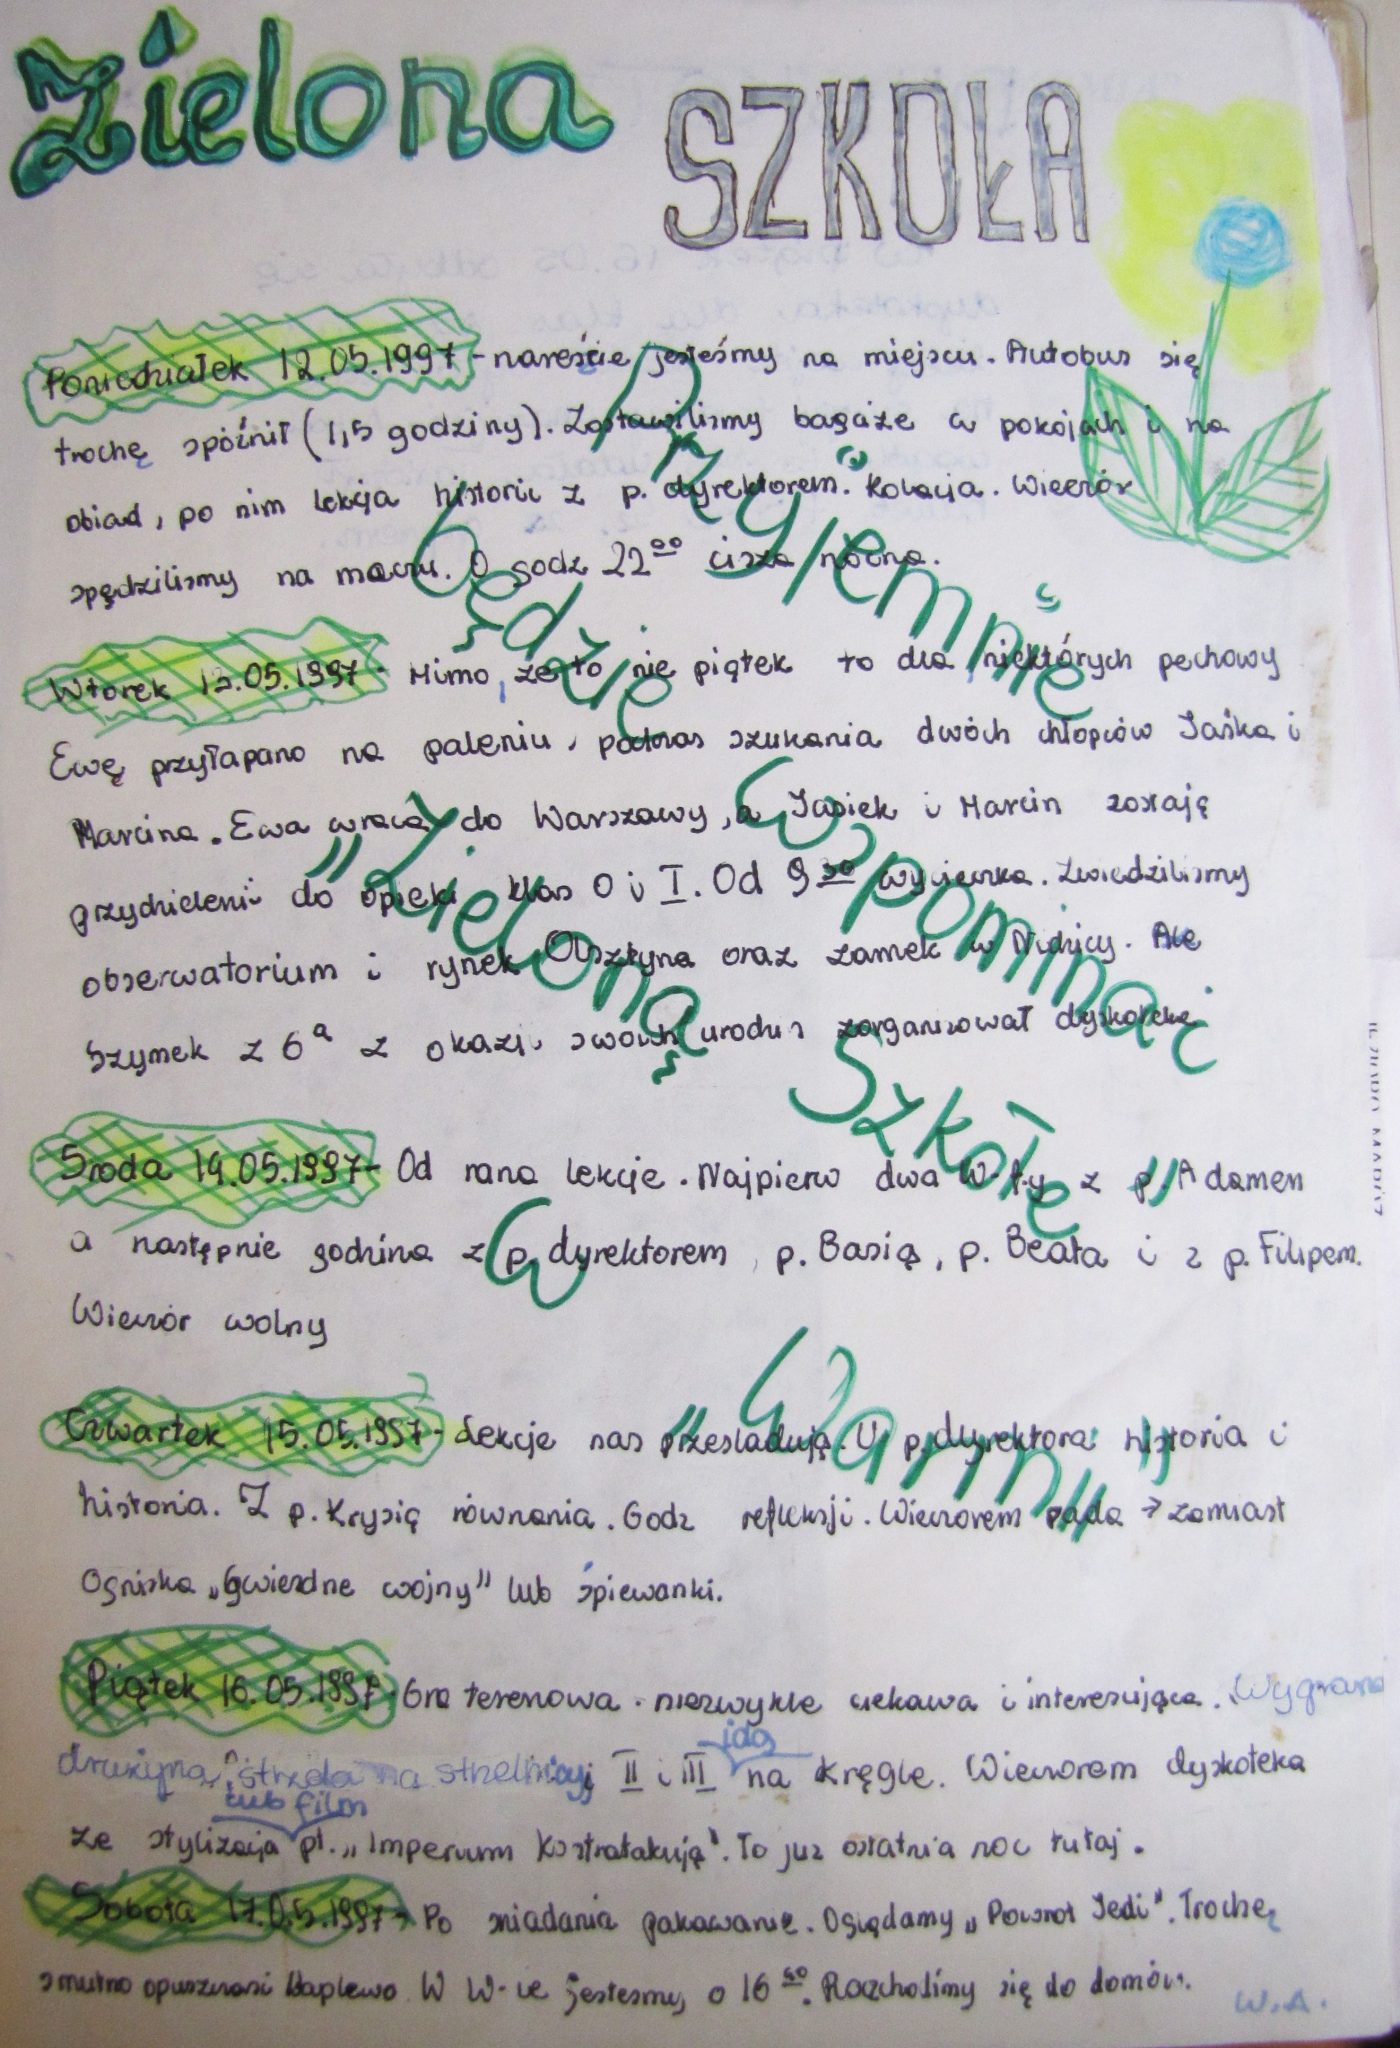 Zielona SZKOŁA
Poniedziałek 12.05.1997 - nareście jesteśmy na miejscu. Autobus się
trochę spóźnił (1,5 godziny). Zostawilismy bagaże w pokojach i na
obiad, po nim lekcja historii z p. dyrektorem. Kolacja. Wieczór
spędzilismy na meczu. O godz 22⁰⁰ cisza nocna.
Wtorek 13.05.1997 - Mimo, ze to nie piątek to dla niektórych pechowy
Ewę przyłapano na paleniu, podczas szukania dwóch chłopców Jaśka i
Marcina. Ewa wraca do Warszawy, a Jasiek i Marcin zostają
przydzieleni do opieki klas 0 i I. Od 9³⁰ wycieczka. Zwiedzilismy
obserwatorium i rynek Olsztyna oraz zamek w Nidzicy. Ale
Szymek z 6ᵃ z okazji swoich urodzin zorganizował dyskotekę
Sroda 14.05.1997 - Od rana lekcje. Najpierw dwa W-f-y z p. Adamem
a następnie godzina z p. dyrektorem, p. Basią, p. Beata i z p. Filipem.
Wieczór wolny
Czwartek 15.05.1997 - Lekcje nas przesladują. U p. dyrektora historia i
historia. Z p. Krysią równania. Godz refleksji. Wieczorem pada → zamiast
Ogniska „Gwiezdne wojny" lub śpiewanki.
Piątek 16.05.1997 - Gra terenowa - niezwykle ciekawa i interesująca. Wygrana
drużyna strzela na strzelnicy, II i III idą na kręgle. Wieczorem dyskoteka
lub film
ze stylizacja pt. „Imperium Kontratakują". To juz ostatnia noc tutaj.
Sobota 17.05.1997 - Po sniadania pakowanie. Oglądamy „Powrot Jedi". Trochę
smutno opuszczasi Waplewo. W W-ie jestesmy o 16 . Rozchodimy się do domów.
W.A.
Przyjemnie
będzie
wspominać
„Zieloną
Szkołę"
w
„Warmii"